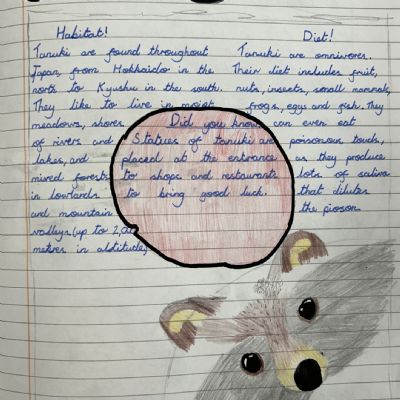 Habitat!
Tanuki are found throughout
Japan, from Hokkaido in the
north to Kyushu in the south.
They like to live in moist
meadows, shores
of rivers and
lakes, and
mixed forests
in lowlands
and mountain
valleys (up to 2,000
metres in altitude)
Did you know
Statues of tanuki are
placed at the entrance
to shops and restaurants
to bring good luck.
Diet!
Tanuki are omnivores.
Their diet includes fruit,
nuts, insects, small mammals,
frogs, eggs and fish. They
can even eat
poisonous toads,
as they produce
lots of saliva
that dilutes
the pioson.